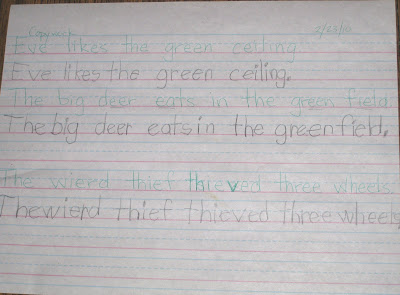 Copywork 2/23/10
Eve likes the green ceiling
Eve likes the green ceiling.
The big deer eats in the green field.
The big deer eats in the green field.
The wierd thief thieved three wheels.
The wierd thief thieved three wheels